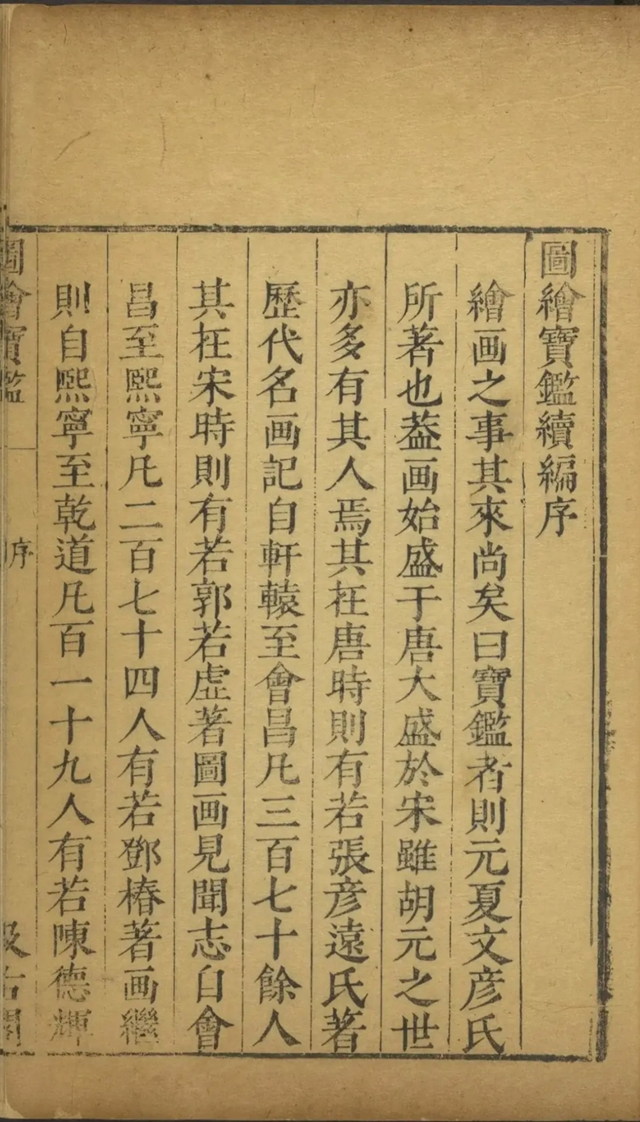 圖繪寶鑑續編序
繪画之事其來尚矣曰寶鑑者則元夏文彦氏
所著也葢画始盛于唐大盛於宋雖胡元之世
亦多有其人焉其在唐時則有若張彦遠氏著
歷代名画記自軒轅至會昌凡三百七十餘人
其在宋時則有若郭若虛著圖画見聞志自會
昌至熙寧凡二百七十四人有若鄧椿著画繼
則自熙寧至乾道凡百一十九人有若陳德輝
圖繪寶鑑
序
汲古閣